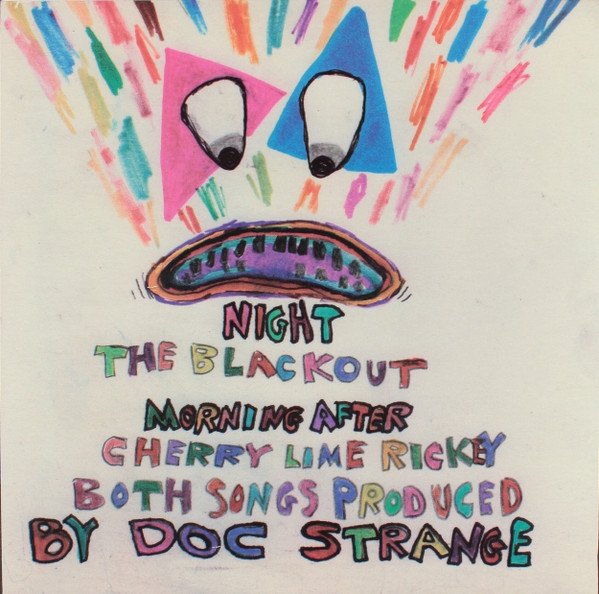 NIGHT
THE BLACKOUT
MORNING AFTER
CHERRY LIME RICKEY
BOTH SONGS PRODUCED
BY DOC STRANGE